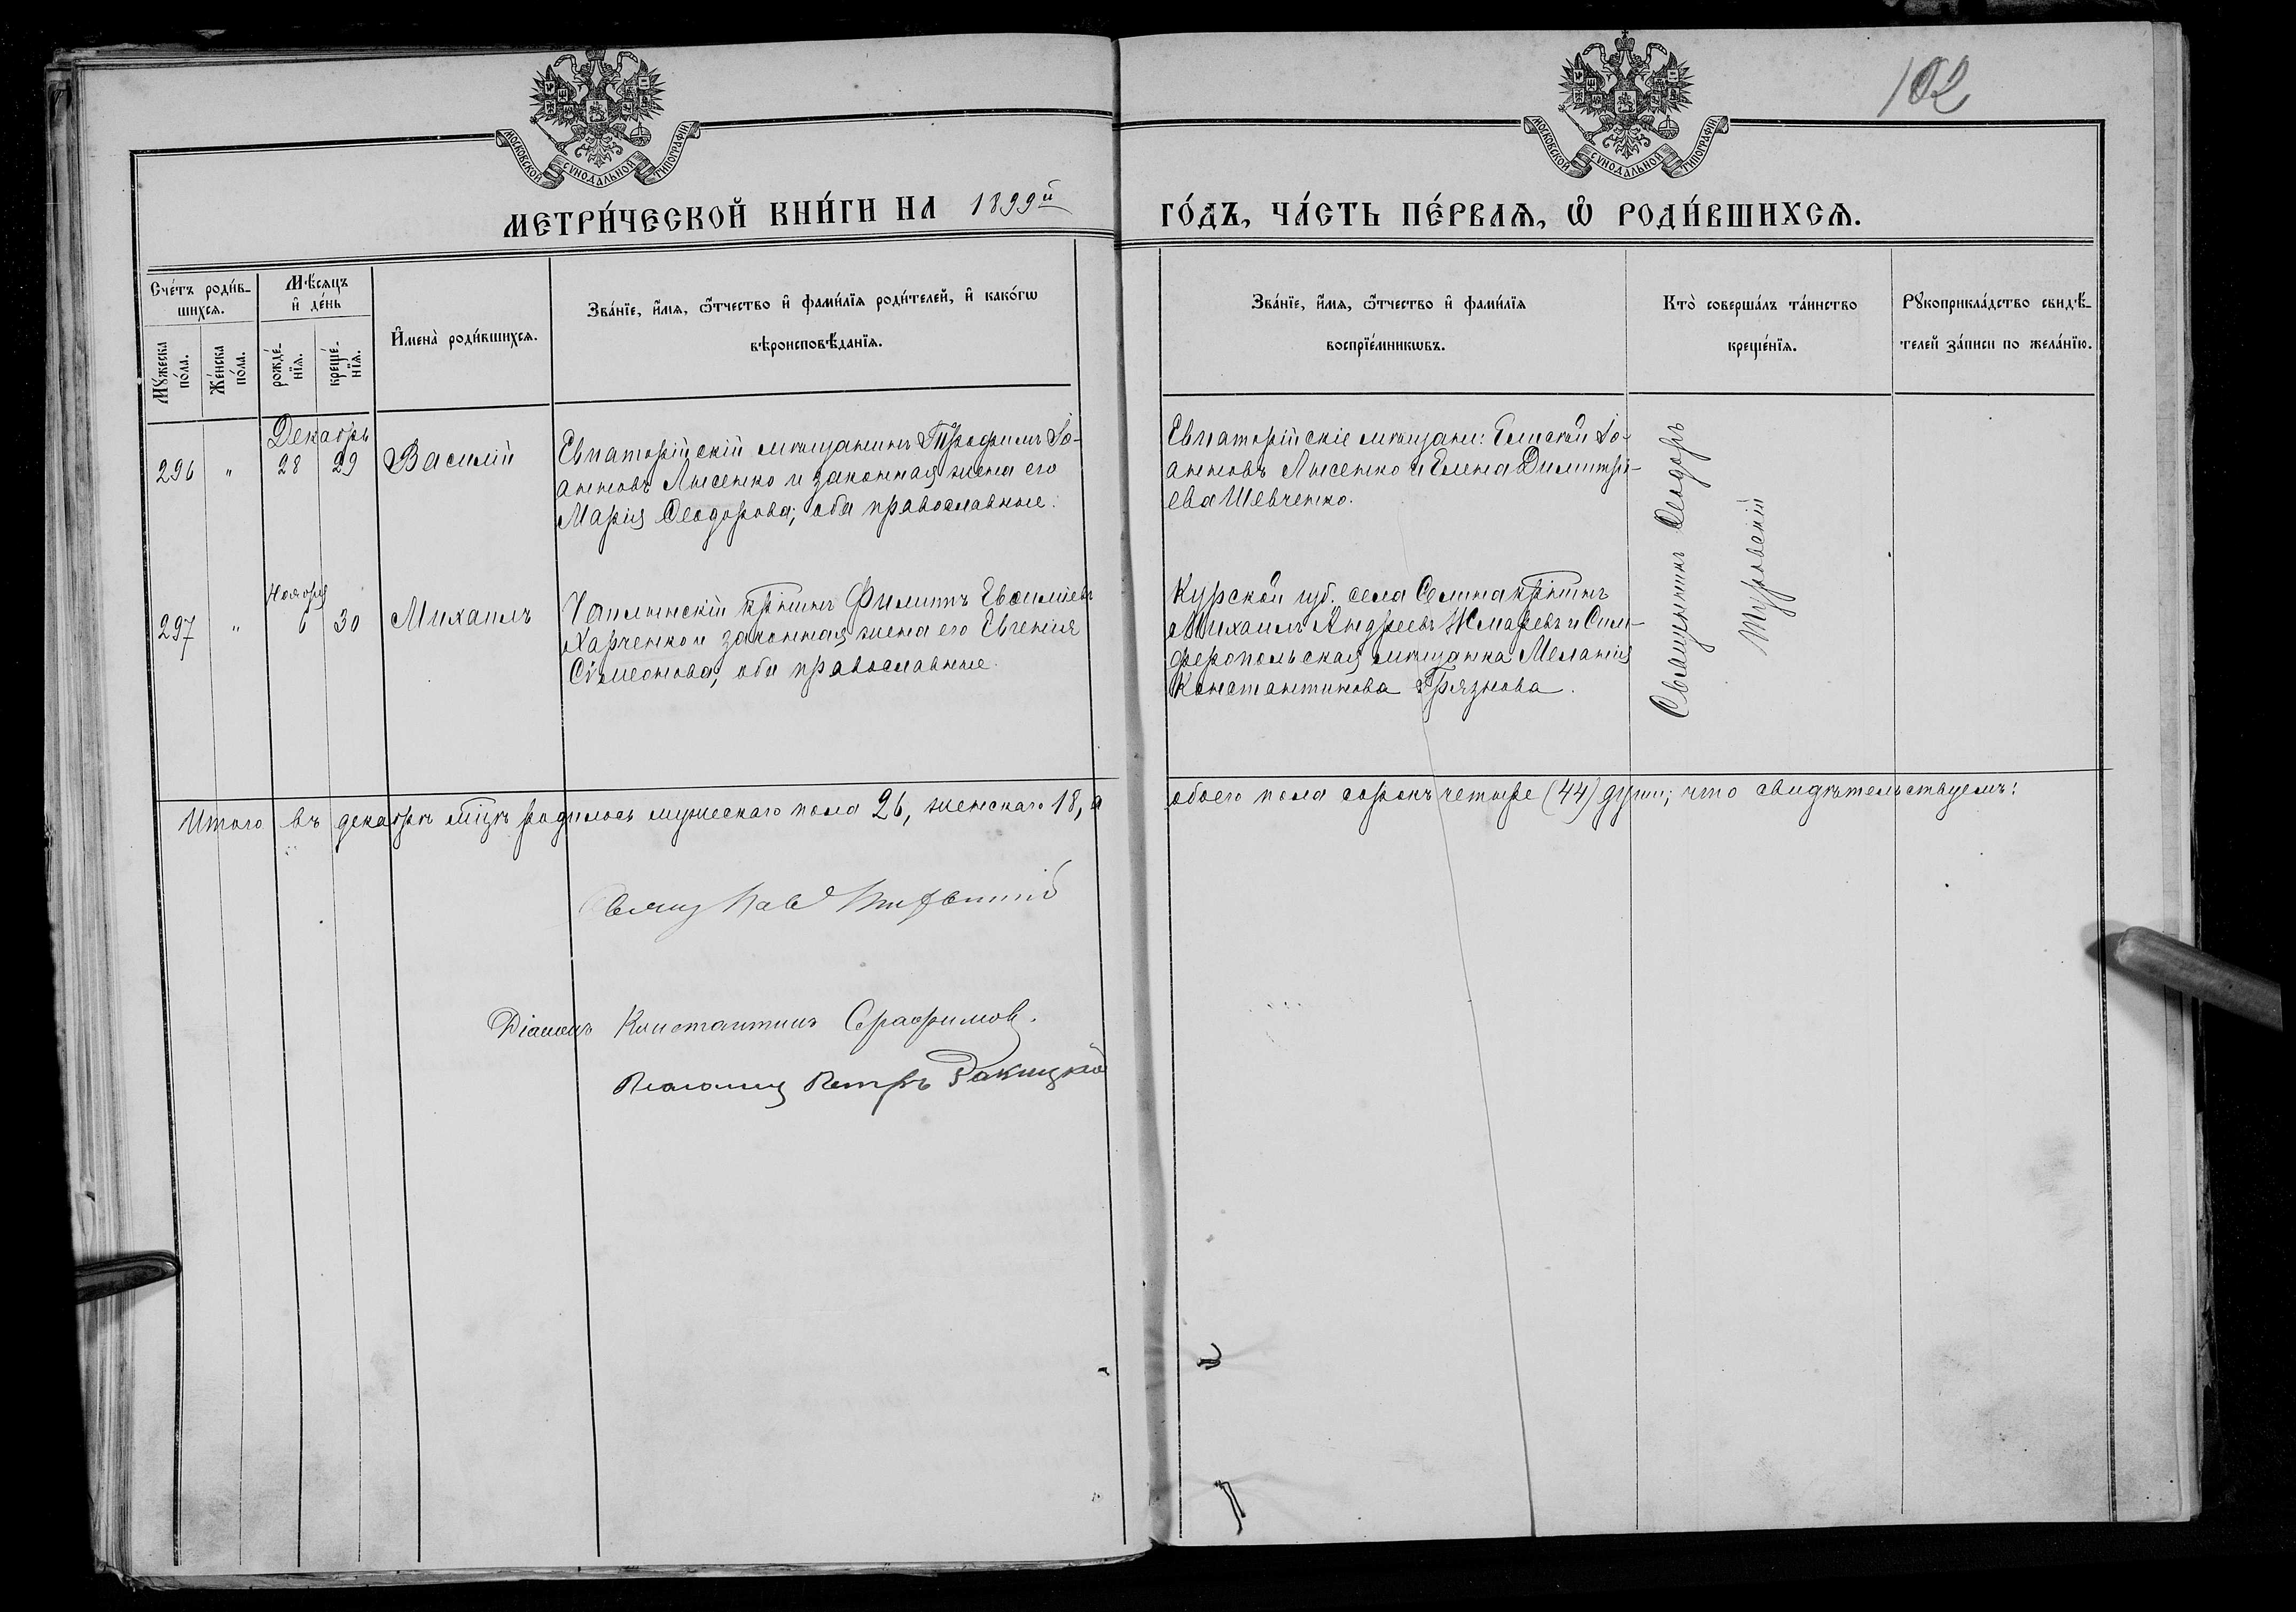 102
МОСКОВСКОЙ СУНОДАЛЬНОЙ ТИПОГРАФІИ.
МОСКОВСКОЙ СУНОДАЛЬНОЙ ТИПОГРАФІИ.
МЕТРИ́ЧЕСКОЙ КНИ́ГИ НА 1899й ГО́ДЪ, ЧА́СТЬ ПЕ́РВАѦ, Ѡ РОДИ́ВШИХСѦ.
Сче́тъ роди́в-
шихсѧ.
Мꙋжеска
по́ла.
Же́нска
по́ла.
Мѣ́сѧцъ
и҆ де́нь
рожде́-
нїѧ.
креще́-
нїѧ.
И҆мена̀ роди́вшихсѧ.
Зва́нїе, и҆́мѧ, ѻ҆́тчество и҆ фами́лїѧ роди́телей, и҆ како́гѡ
вѣроисповѣ́данїѧ.
Зва́нїе, и҆́мѧ, ѻ҆́тчество и҆ фами́лїѧ
воспрїе́мникѡвъ.
Кто̀ соверша́лъ та́инство
креще́нїѧ.
Рꙋкоприкла́дство свидѣ́-
телей за́писи по жела́нїю.
Декабрь
296 " 28 29 Василій
Евпаторійскій мѣщанинъ Трофимъ Іо-
анновъ Лысенко и законная жена его
Марія Ѳеодорова; оба православные.
Евпаторійскіе мѣщане: Елисей Іо-
анновъ Лысенко и Елена Димитрі-
ева Шевченко.
Священникъ Ѳеодоръ
Туровскій
Ноября
297 " 6 30 Михаилъ
Чаплинскій крѣнинъ Филиппъ Евѳиміевъ
Харченко и законная жена его Евгенія
Сѵмеонова, оба православные.
Курской губ. села Селина крѣнинъ
Михаилъ Андреевъ Жмаревъ и Сим-
феропольская мѣщанка Меланія
Константинова Грязнова.
Итого въ декабрѣ мѣцѣ родилось мужескаго пола 26, женскаго 18, а обоего пола сорокъ четыре (44) души; что свидѣтельствуемъ:
Діаконъ Константинъ Серафимов.
Псаломщ Петръ Ракицкій